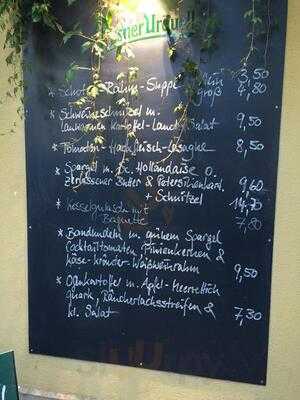 Pilsner Urquell
* Schoten-Rahm-Suppe klein 3,50
groß 4,80
* Schweineschnitzel m.
lauwarmen Kartoffel-Lauch-Salat 9,50
* Tomaten-Hackfleisch-Lasagne 8,50
* Spargel m. Sc. Hollandaise o.
zerlassener Butter & Petersilienkart. 9,60
+ Schnitzel 14,70
* Kesselgulasch mit
Baguette 7,80
* Bandnudeln m. grünem Spargel
Cocktailtomaten, Pinienkernen &
Käse-Kräuter-Weißweinrahm 9,50
* Ofenkartoffel m. Apfel-Meerrettich
quark, Räucherlachsstreifen &
kl. Salat 7,30